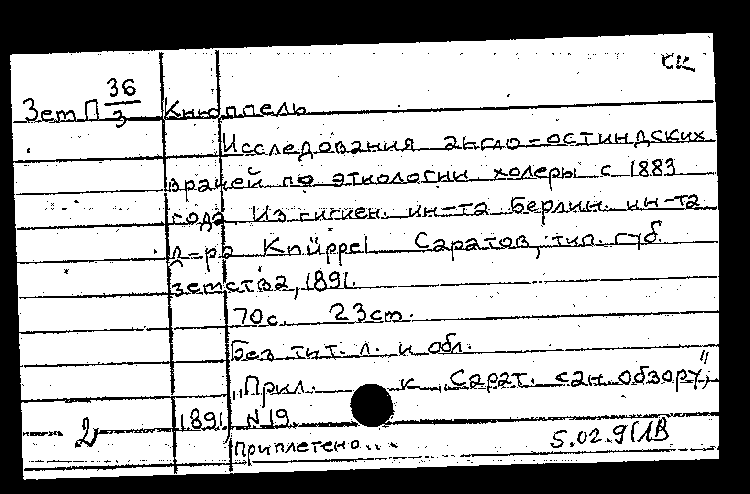 ск
Зет П 36/3 Кнюппель
Исследования англо=остиндских
врачей по этиологии холеры с 1883
года Из гигиен. ин-та берлин. ин-та
д=ра Knüppel Саратов, тип. губ.
земства, 1891.
70 с. 23 cm.
Без тит. л. и обл.
„Прил. к „Сарат. сан. обзору",
2 1891, N 19.
Приплетено...